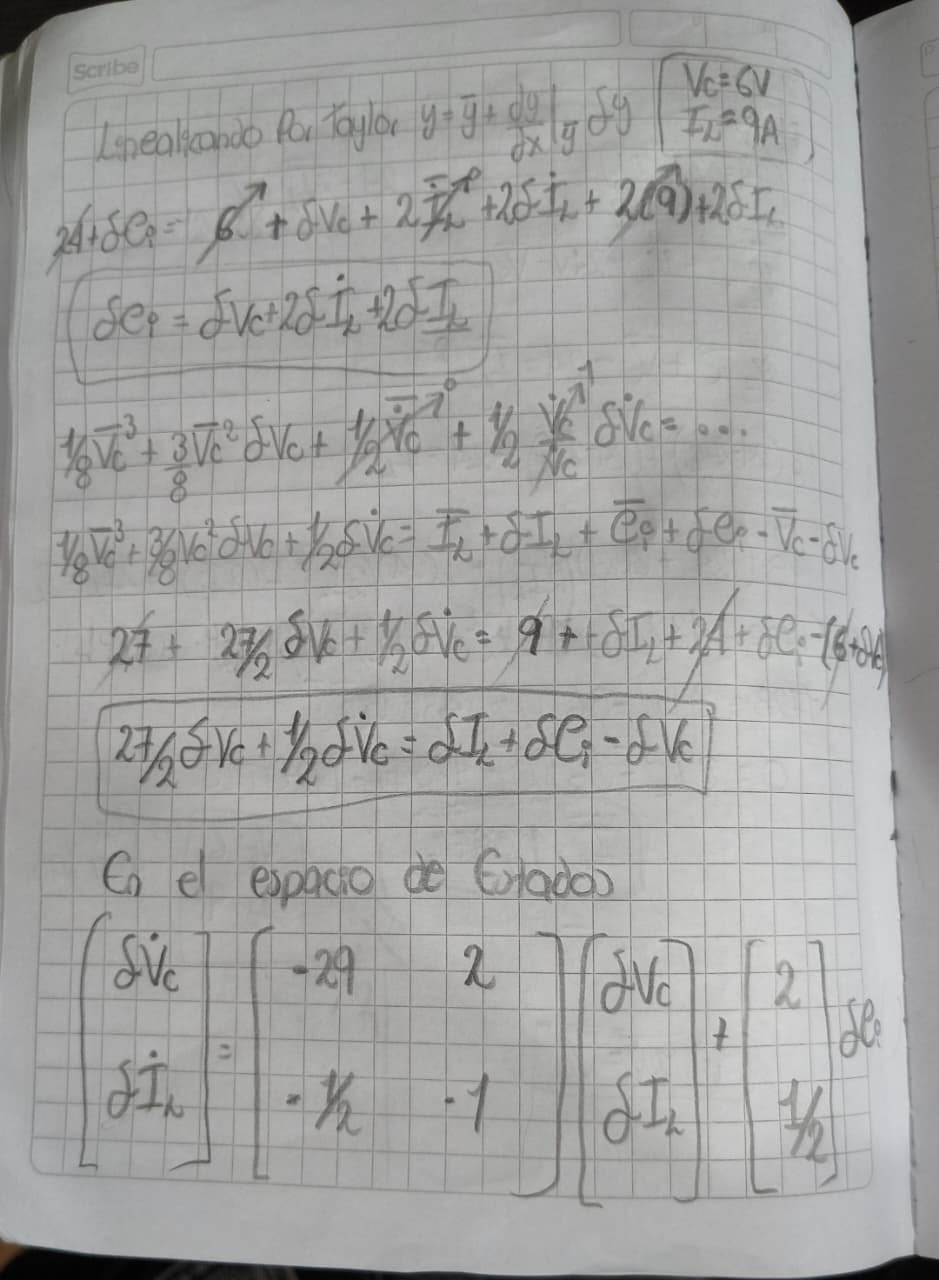 Scribe
Linealizando Por Taylor y = ȳ + dy/dx|ȳ δy
Vc = 6V
IL = 9A
24 + δei = 6 + δVc + 2İL→0 + 2δİL + 2(9) + 2δIL
δei = δVc + 2δİL + 2δIL
1/8 V̄c³ + 3/8 V̄c² δVc + 1/2 V̇c→0 + 1/2 V̇c/V̇c→1 δV̇c = ...
1/8 V̄c³ + 3/8 Vc² δVc + 1/2 δV̇c = ĪL + δIL + ēi + δei - V̄c - δVc
27 + 27/2 δVc + 1/2 δV̇c = 9 + δIL + 24 + δei - (6 + δVc)
27/2 δVc + 1/2 δV̇c = δIL + δei - δVc
En el espacio de Estados
[δV̇c] = [-29 2] [δVc] + [2] δei
[δİL] [-1/2 -1] [δIL] [1/2]